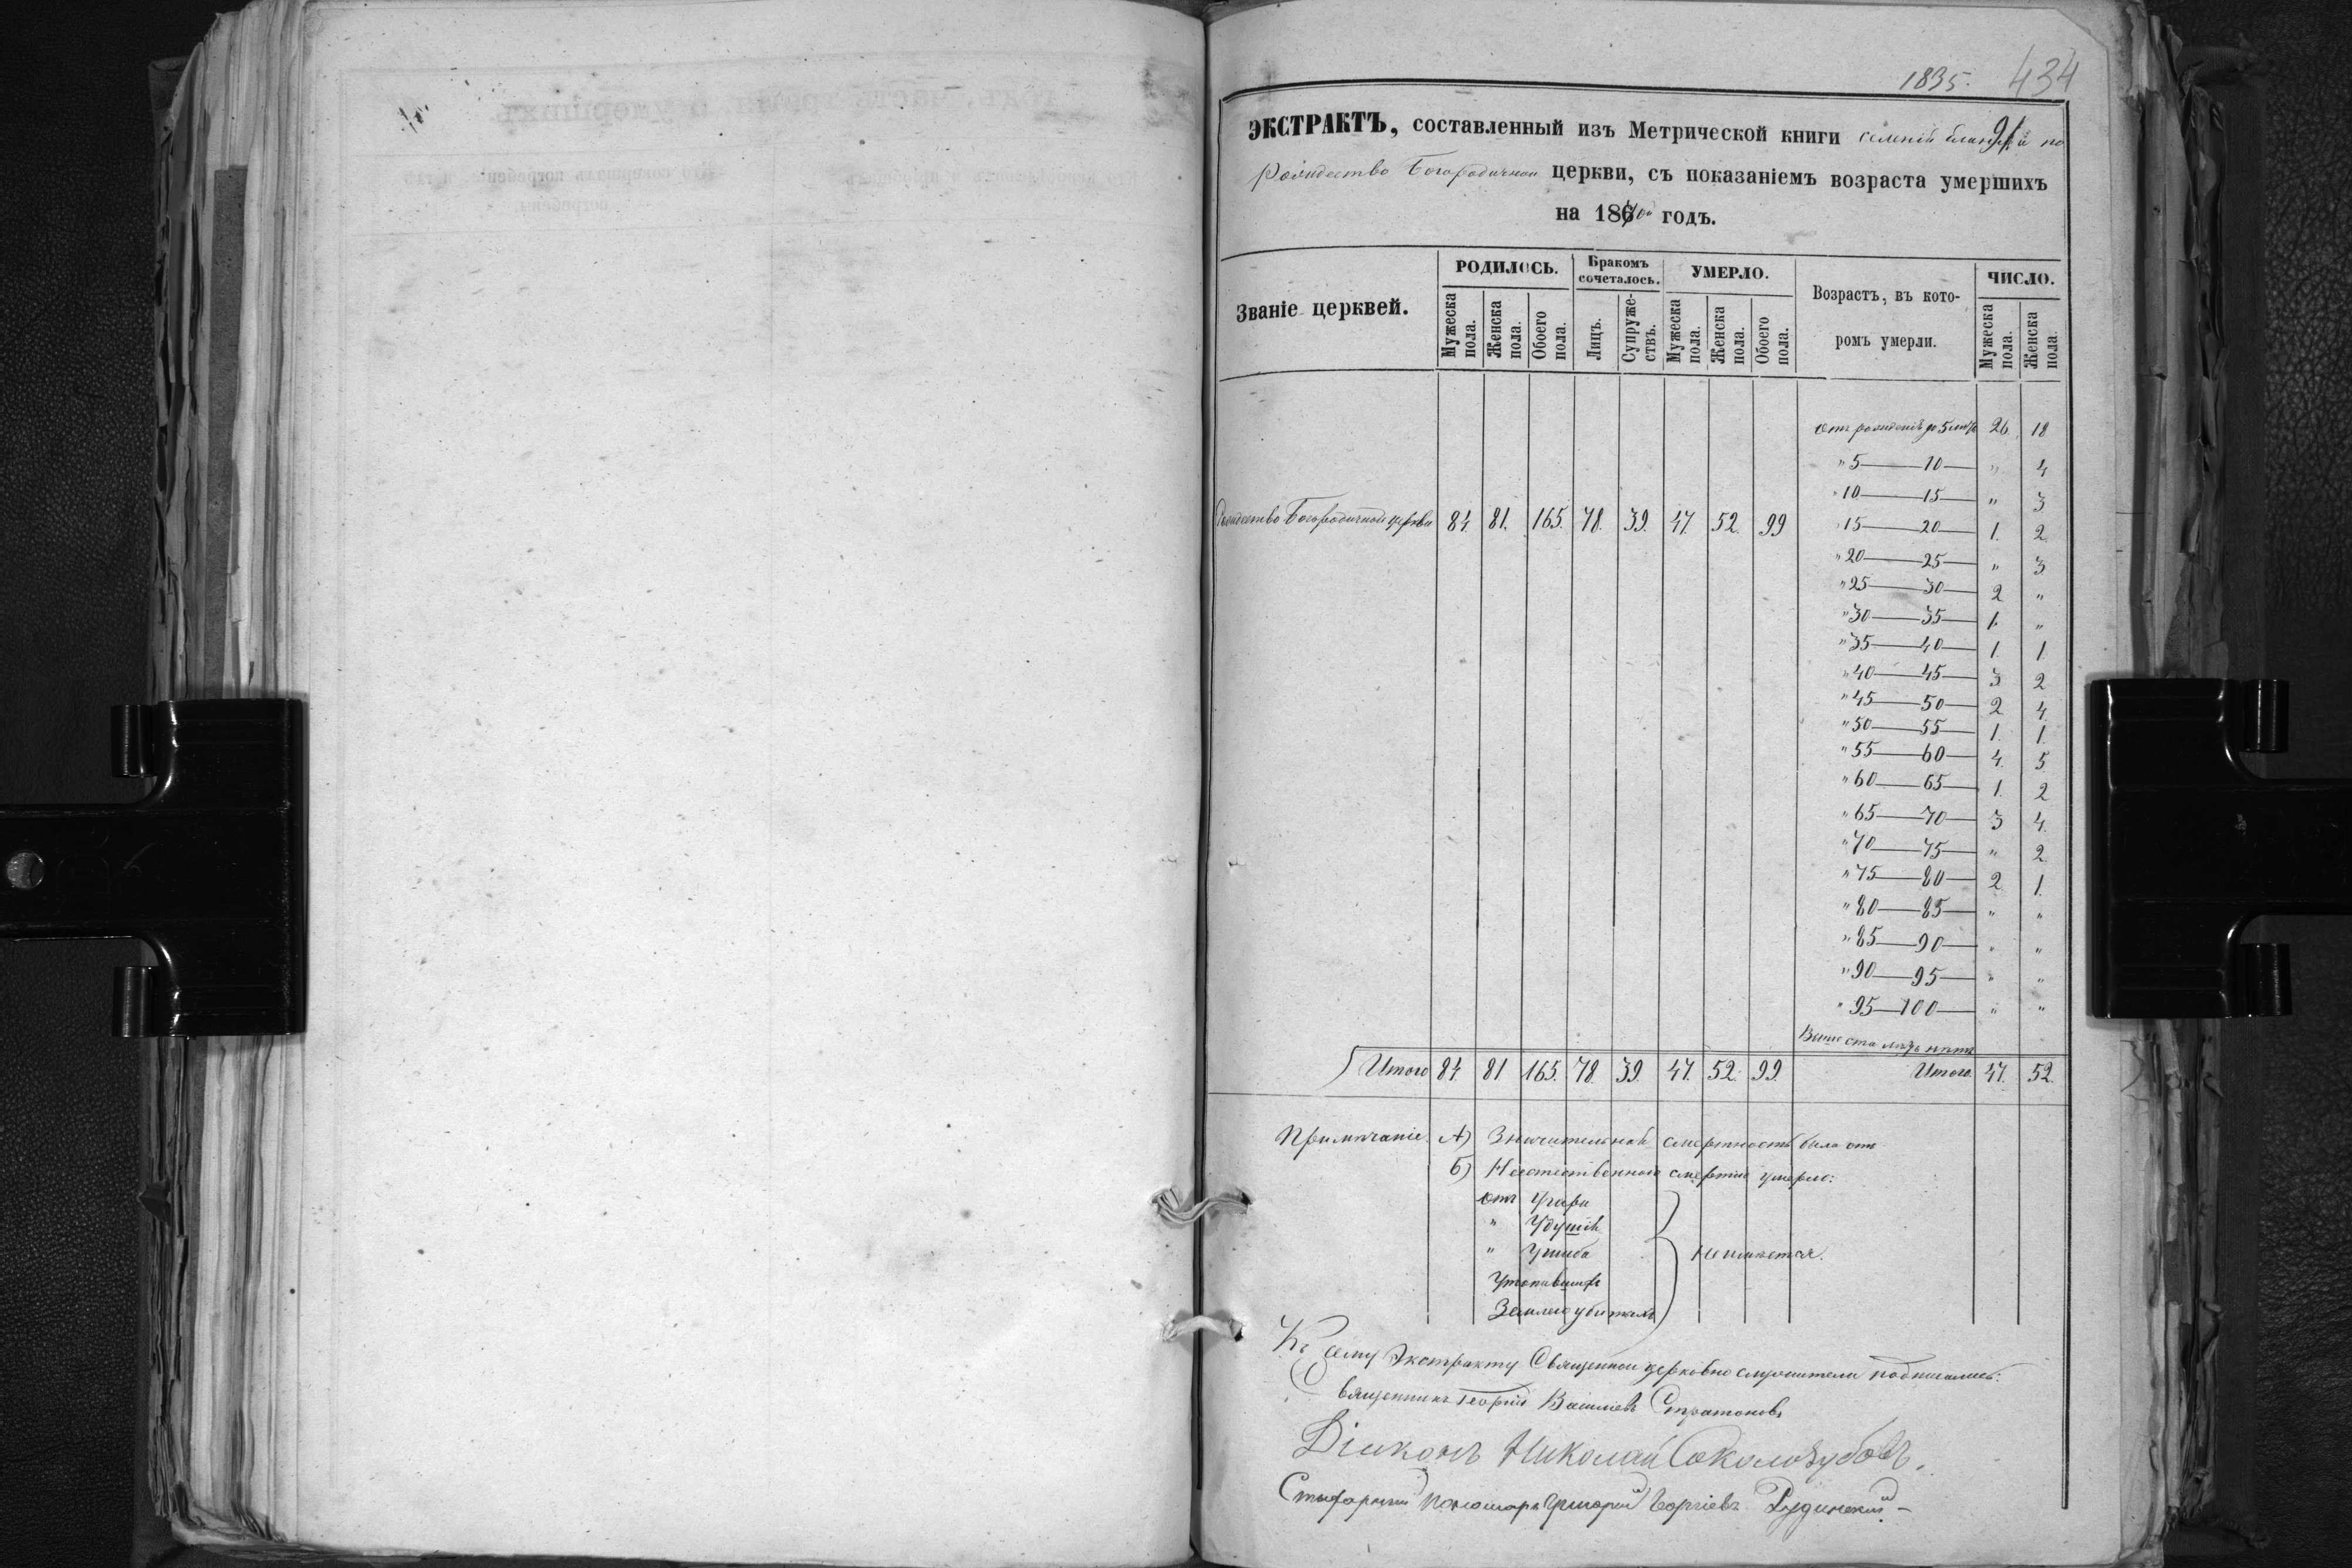 1835. 434
ЭКСТРАКТЪ, составленный изъ Метрической книги
Рождество Богородичной церкви, съ показаніемъ возраста умершихъ
на 1870й годъ.
Званіе церквей. РОДИЛОСЬ. Бракомъ сочеталось. УМЕРЛО. Возрастъ, въ кото- ромъ умерли. ЧИСЛО.
Мужеска пола. Женска пола. Обоего пола. Лицъ. Супруже- ствъ. Мужеска пола. Женска пола. Обоего пола. Мужеска пола. Женска пола
Отъ рожденія до 5 лѣтъ 26. 18
" 5 — 10 — " 4
" 10 — 15 — " 3
Рождество Богородичной церкви 84. 81. 165. 78. 39. 47. 52. 99 " 15 — 20 — 1. 2.
" 20 — 25 — " 3
" 25 — 30 — 2 "
" 30 — 35 — 1. "
" 35 — 40 — 1. 1.
" 40 — 45 — 3 2
" 45 — 50 — 2 4.
" 50 — 55 — 1. 1.
" 55 — 60 — 4. 5
" 60 — 65 — 1. 2
" 65 — 70 — 3 4.
" 70 — 75 — " 2
" 75 — 80 — 2. 1.
" 80 — 85 — " "
" 85 — 90 — " "
" 90 — 95 — " "
" 95 — 100 — " "
Выше ста лѣтъ нѣтъ
Итого 84. 81 165. 78. 39. 47. 52. 99. Итого. 47. 52.
Примѣчаніе. А) Значительной смертность была отъ
Б) Неестественною смертію умерло:
отъ Угара
" Удушія
" Ушиба
Неимѣется.
Утопавшихъ
Землею убитыхъ
Къ сему Экстракту Священно церковно служители подписались:
Священникъ Георгій Василіевъ Стратоновъ
Діаконъ Николай Соколозубовъ.
пономарь Григорій Рудинскій —